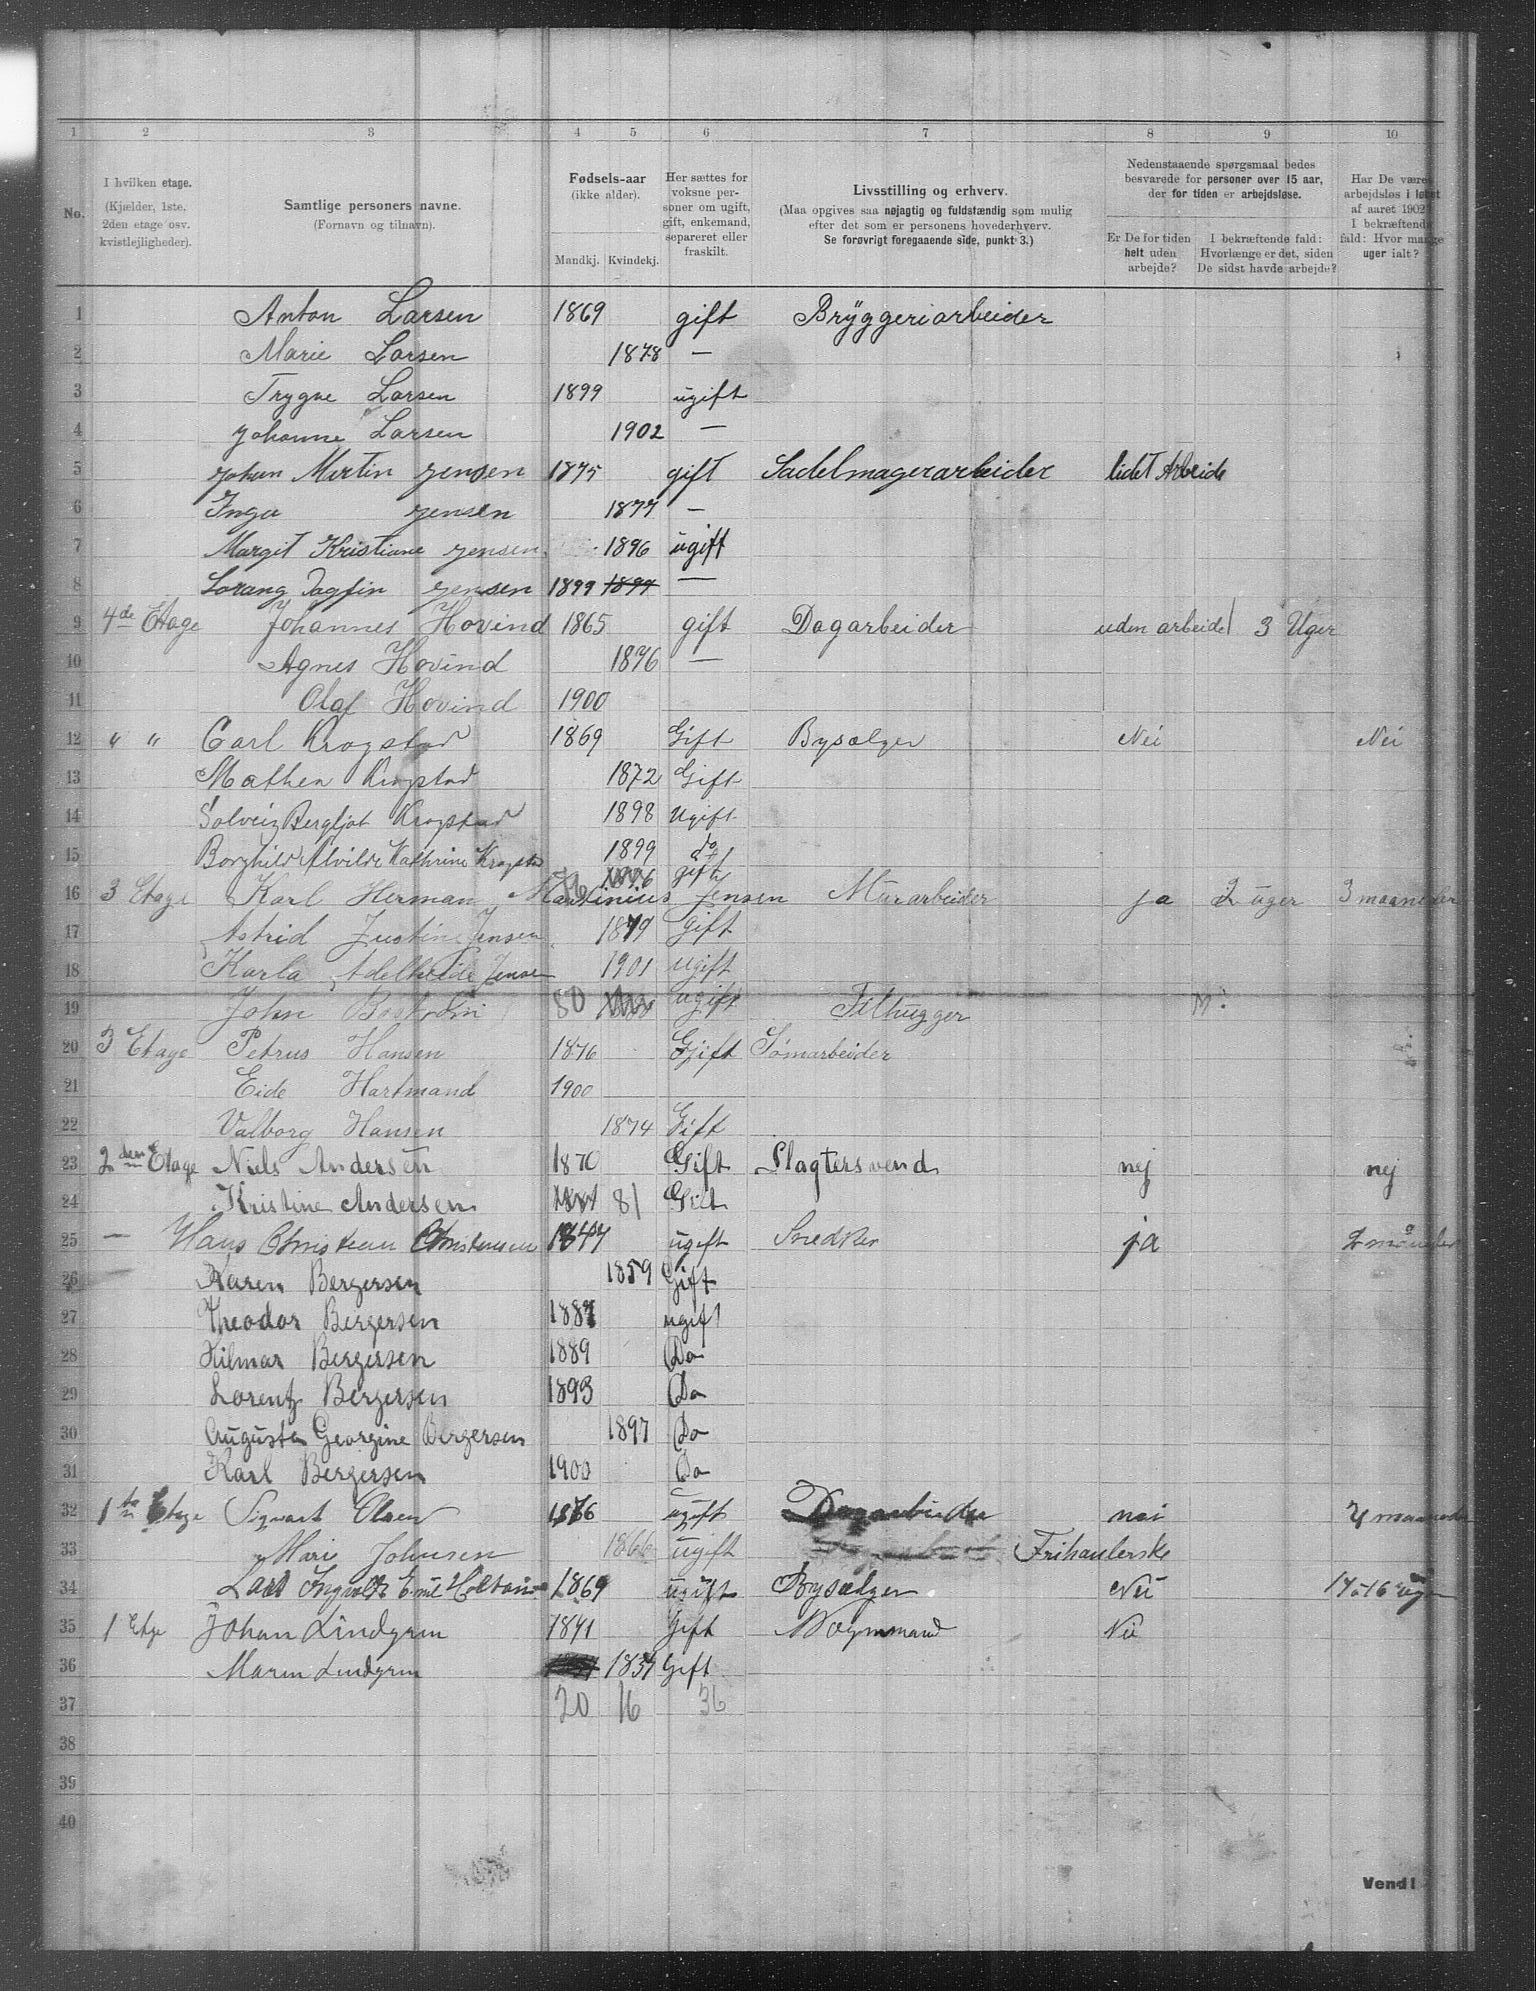 1 2 3 4 5 6 7 8 9 10
No.
I hvilken etage.
(Kjælder, 1ste, 2den etage osv. kvistlejligheder).
Samtlige personers navne.
(Fornavn og tilnavn).
Fødsels-aar
(ikke alder).
Mandkj. Kvindekj.
Her sættes for voksne personer om ugift, gift, enkemand, separeret eller fraskilt.
Livsstilling og erhverv.
(Maa opgives saa nøjagtig og fuldstændig som mulig
efter det som er personens hovederhverv.
Se forøvrigt foregaaende side, punkt 3.)
Nedenstaaende spørgsmaal bedes
besvarede for personer over 15 aar,
der for tiden er arbejdsløse.
Er De for tiden
helt uden
arbejde?
I bekræftende fald:
Hvorlænge er det, siden
De sidst havde arbejde?
Har De været
arbejdsløs i løbet
af aaret 1902?
I bekræftende
fald: Hvor mange
uger ialt?
1 Anton Larsen 1869 gift Bryggeriarbeider
2 Marie Larsen 1878 —
3 Trygve Larsen 1899 ugift
4 Johanne Larsen 1902 —
5 Johan Martin Jensen 1875 gift Sadelmagerarbeider lidet Arbeide
6 Inga Jensen 1877 —
7 Margit Kristiane Jensen 1896 ugift
8 Lorang Dagfin Jensen 1899 1899 —
9 4de Etage Johannes Hovind 1865 gift Dagarbeider uden arbeide 3 Uger
10 Agnes Hovind 1876 —
11 Olaf Hovind 1900
12 " " Carl Krogstad 1869 Gift Bysælger Nei Nei
13 Mathea Krogstad 1872 Gift
14 Solveig Bergljot Krogstad 1898 Ugift
15 Borghild Alvilde Kathrine Krogstad 1899 do
16 3 Etage Karl Herman Martinius Jensen 76 gift Murarbeider ja 2 uger 3 maaneder
17 Astrid Justine Jensen 1879 gift
18 Karla Adelheide Jensen 1901 ugift
19 John 80 ugift Filhugger
20 3 Etage Petrus Hansen 1876 Gift Sømarbeider
21 Eide Hartmand 1900
22 Valborg Hansen 1874 Gift
23 2den Etage Niels Andersen 1870 Gift Slagtersvend nej nej
24 Kristine Andersen 81 Gift
25 — Hans Christian Christensen 1847 ugift Snedker ja 2 måneder
26 Karen Bergersen 1859 Gift
27 Theodor Bergersen 1887 ugift
28 Hilmar Bergersen 1889 Do
29 Lorentz Bergersen 1893 Do
30 Augusta Georgine Bergersen 1897 Do
31 Karl Bergersen 1900 Do
32 1ste Etage Sigvart Olsen 1876 ugift Dagarbeider nei 4 maaneder
33 Marie Johnsen 1866 ugift Frihandlerske
34 Lars Ingvald Emil 1869 ugift Bysælger Nei 14-16 uger
35 1 Etge Johan Lindgren 1841 Gift Vognmand Nei
36 Maren Lindgren 1837 Gift
37 20 16 36
38
39
40
Vend!